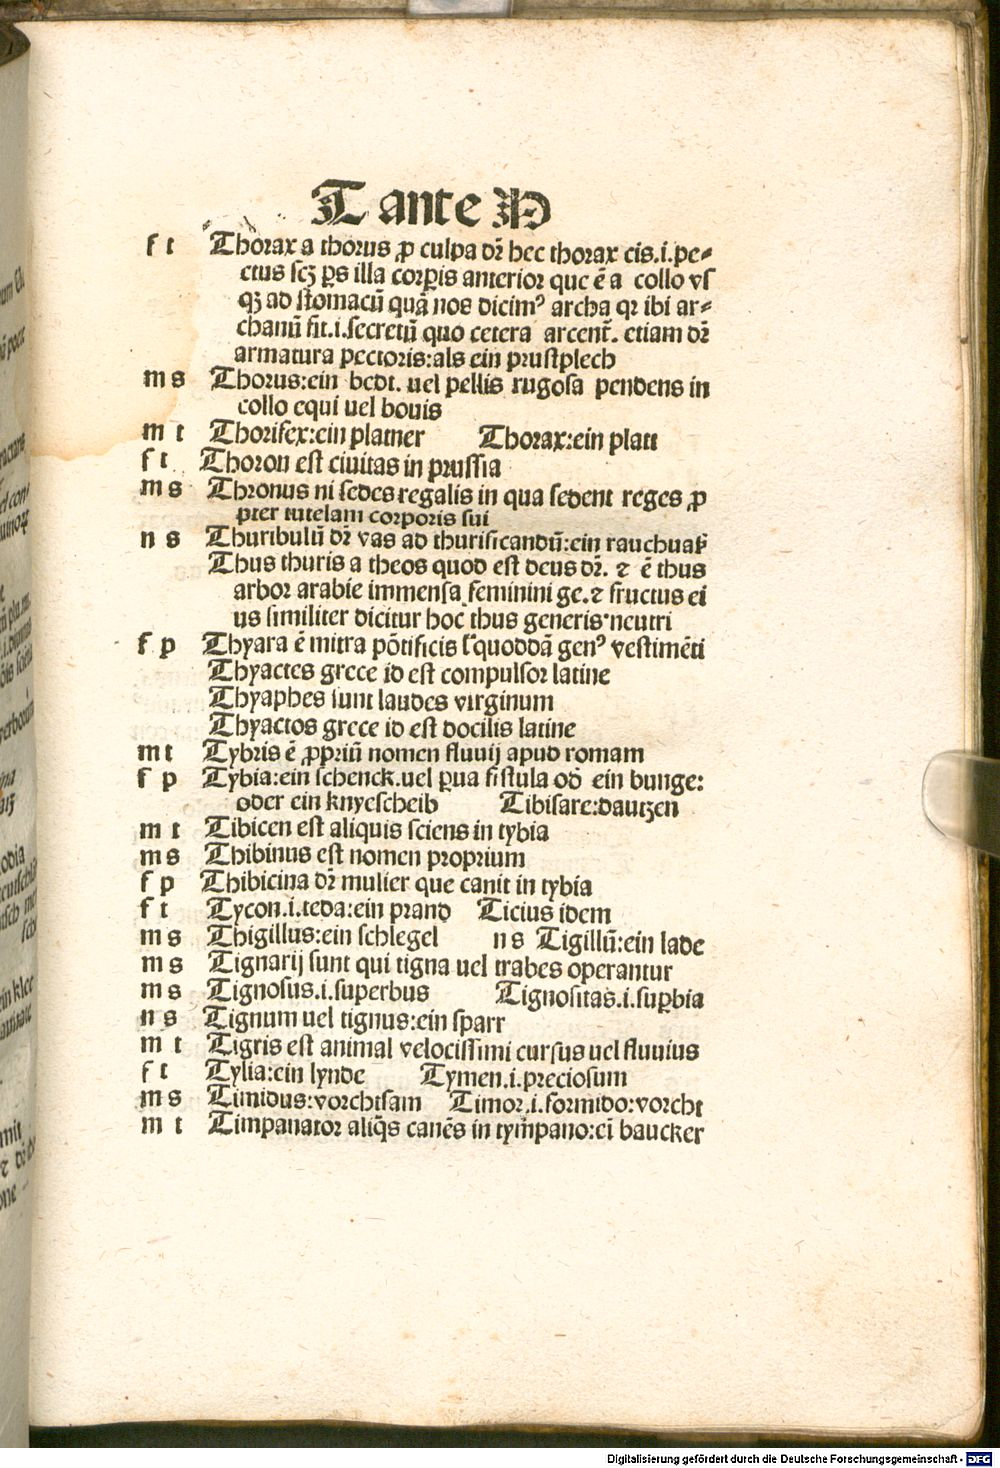 T ante H
f t Thorax a thorus ꝓ culpa dr̄ hec thorax cis.i.pe⸗
ctus scꝫ ꝑs illa corꝑis anterior que ē a collo vs
qꝫ ad stomacū quā nos dicimꝰ archa qr ibi ar⸗
chanū sit.i.secretū quo cetera arcent̄. etiam dr̄
armatura pectoris:als ein prustplech
m s Thorus:ein bedt. uel pellis rugosa pendens in
collo equi uel bouis
m t Thorifex:ein platner Thorax:ein platt
f t Thoron est ciuitas in prussia
m s Thronus ni sedes regalis in qua sedent reges ꝓ
pter tutelam corporis sui
n s Thuribulū dr̄ vas ad thurificandū:ein rauchuaß
Thus thuris a theos quod est deus dr̄. ⁊ ē thus
arbor arabie immensa feminini ge.⁊ fructus ei
us similiter dicitur hoc thus generis neutri
f p Thyara ē mitra pōtificis sꝰ quoddā genꝰ vestimēti
Thyactes grece id est compulsor latine
Thyaphes sunt laudes virginum
Thyactos grece id est docilis latine
m t Tybris ē ꝓpriū nomen fluuij apud romam
f p Tybia:ein schenck.uel ꝑua fistula oď ein bunge:
oder ein knyescheib Tibisare:dautzen
m t Tibicen est aliquis sciens in tybia
m s Thibinus est nomen proprium
f p Thibicina dr̄ mulier que canit in tybia
f t Tycon.i.teda:ein prand Ticius idem
m s Thigillus:ein schlegel n s Tigillū:ein lade
m s Tignarij sunt qui tigna uel trabes operantur
m s Tignosus.i.superbus Tignositas.i.suꝑbia
n s Tignum uel tignus:ein sparr
m t Tigris est animal velocissimi cursus uel fluuius
f t Tylia:ein lynde Tymen.i.preciosum
m s Timidus:vorchtsam Timor.i.formido:vorcht
m t Timpanator aliqͥs canēs in tym̄pano:eī baucker
Digitalisierung gefördert durch die Deutsche Forschungsgemeinschaft - DFG